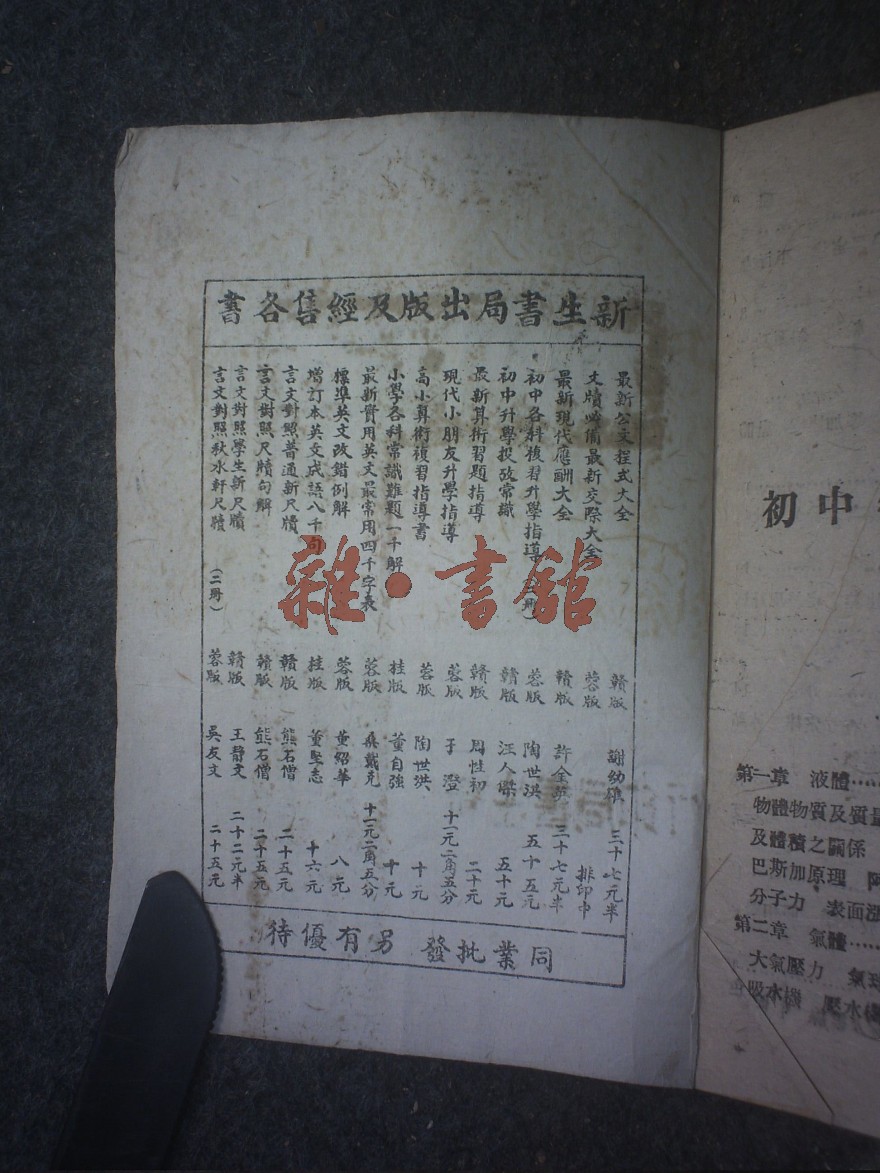 新生書局出版及經售各書
最新公文程式大全 贛版 謝幼雄 三十七元半
文牘必備最新交際大全 蓉版 排印中
最新現代應酬大全 贛版 許金英 三十七元半
初中各科複習升學指導 二冊) 蓉版 陶世洪 五十五元
初中升學投攷常識 贛版 汪人傑 五十元
最新算術習題指導 贛版 周性初 二十元
現代小朋友升學指導 蓉版 子澄 十一元二角五分
高小算術複習指導書 蓉版 陶世洪 十元
小學各科常識難題一千解 桂版 董自強 十元
最新實用英文最常用四千字表 蓉版 桑戴克 十一元二角五分
標準英文改錯例解 蓉版 董紹華 八元
增訂本英文成語八千句 桂版 董堅志 十六元
言文對照普通新尺牘 贛版 熊石僧 二十五元
言文對照尺牘句解 贛版 熊石僧 二十五元
言文對照學生新尺牘 贛版 王靜文 二十二元半
言文對照秋水軒尺牘 (二冊) 蓉版 吳友文 二十五元
同業批發 另有優待
雜·書館
初中
第一章 液體……
物體物質及質量
及體積之關係
巴斯加原理
分子力 表面
第二章 氣體……
大氣壓力 氣
吸水機 壓水機